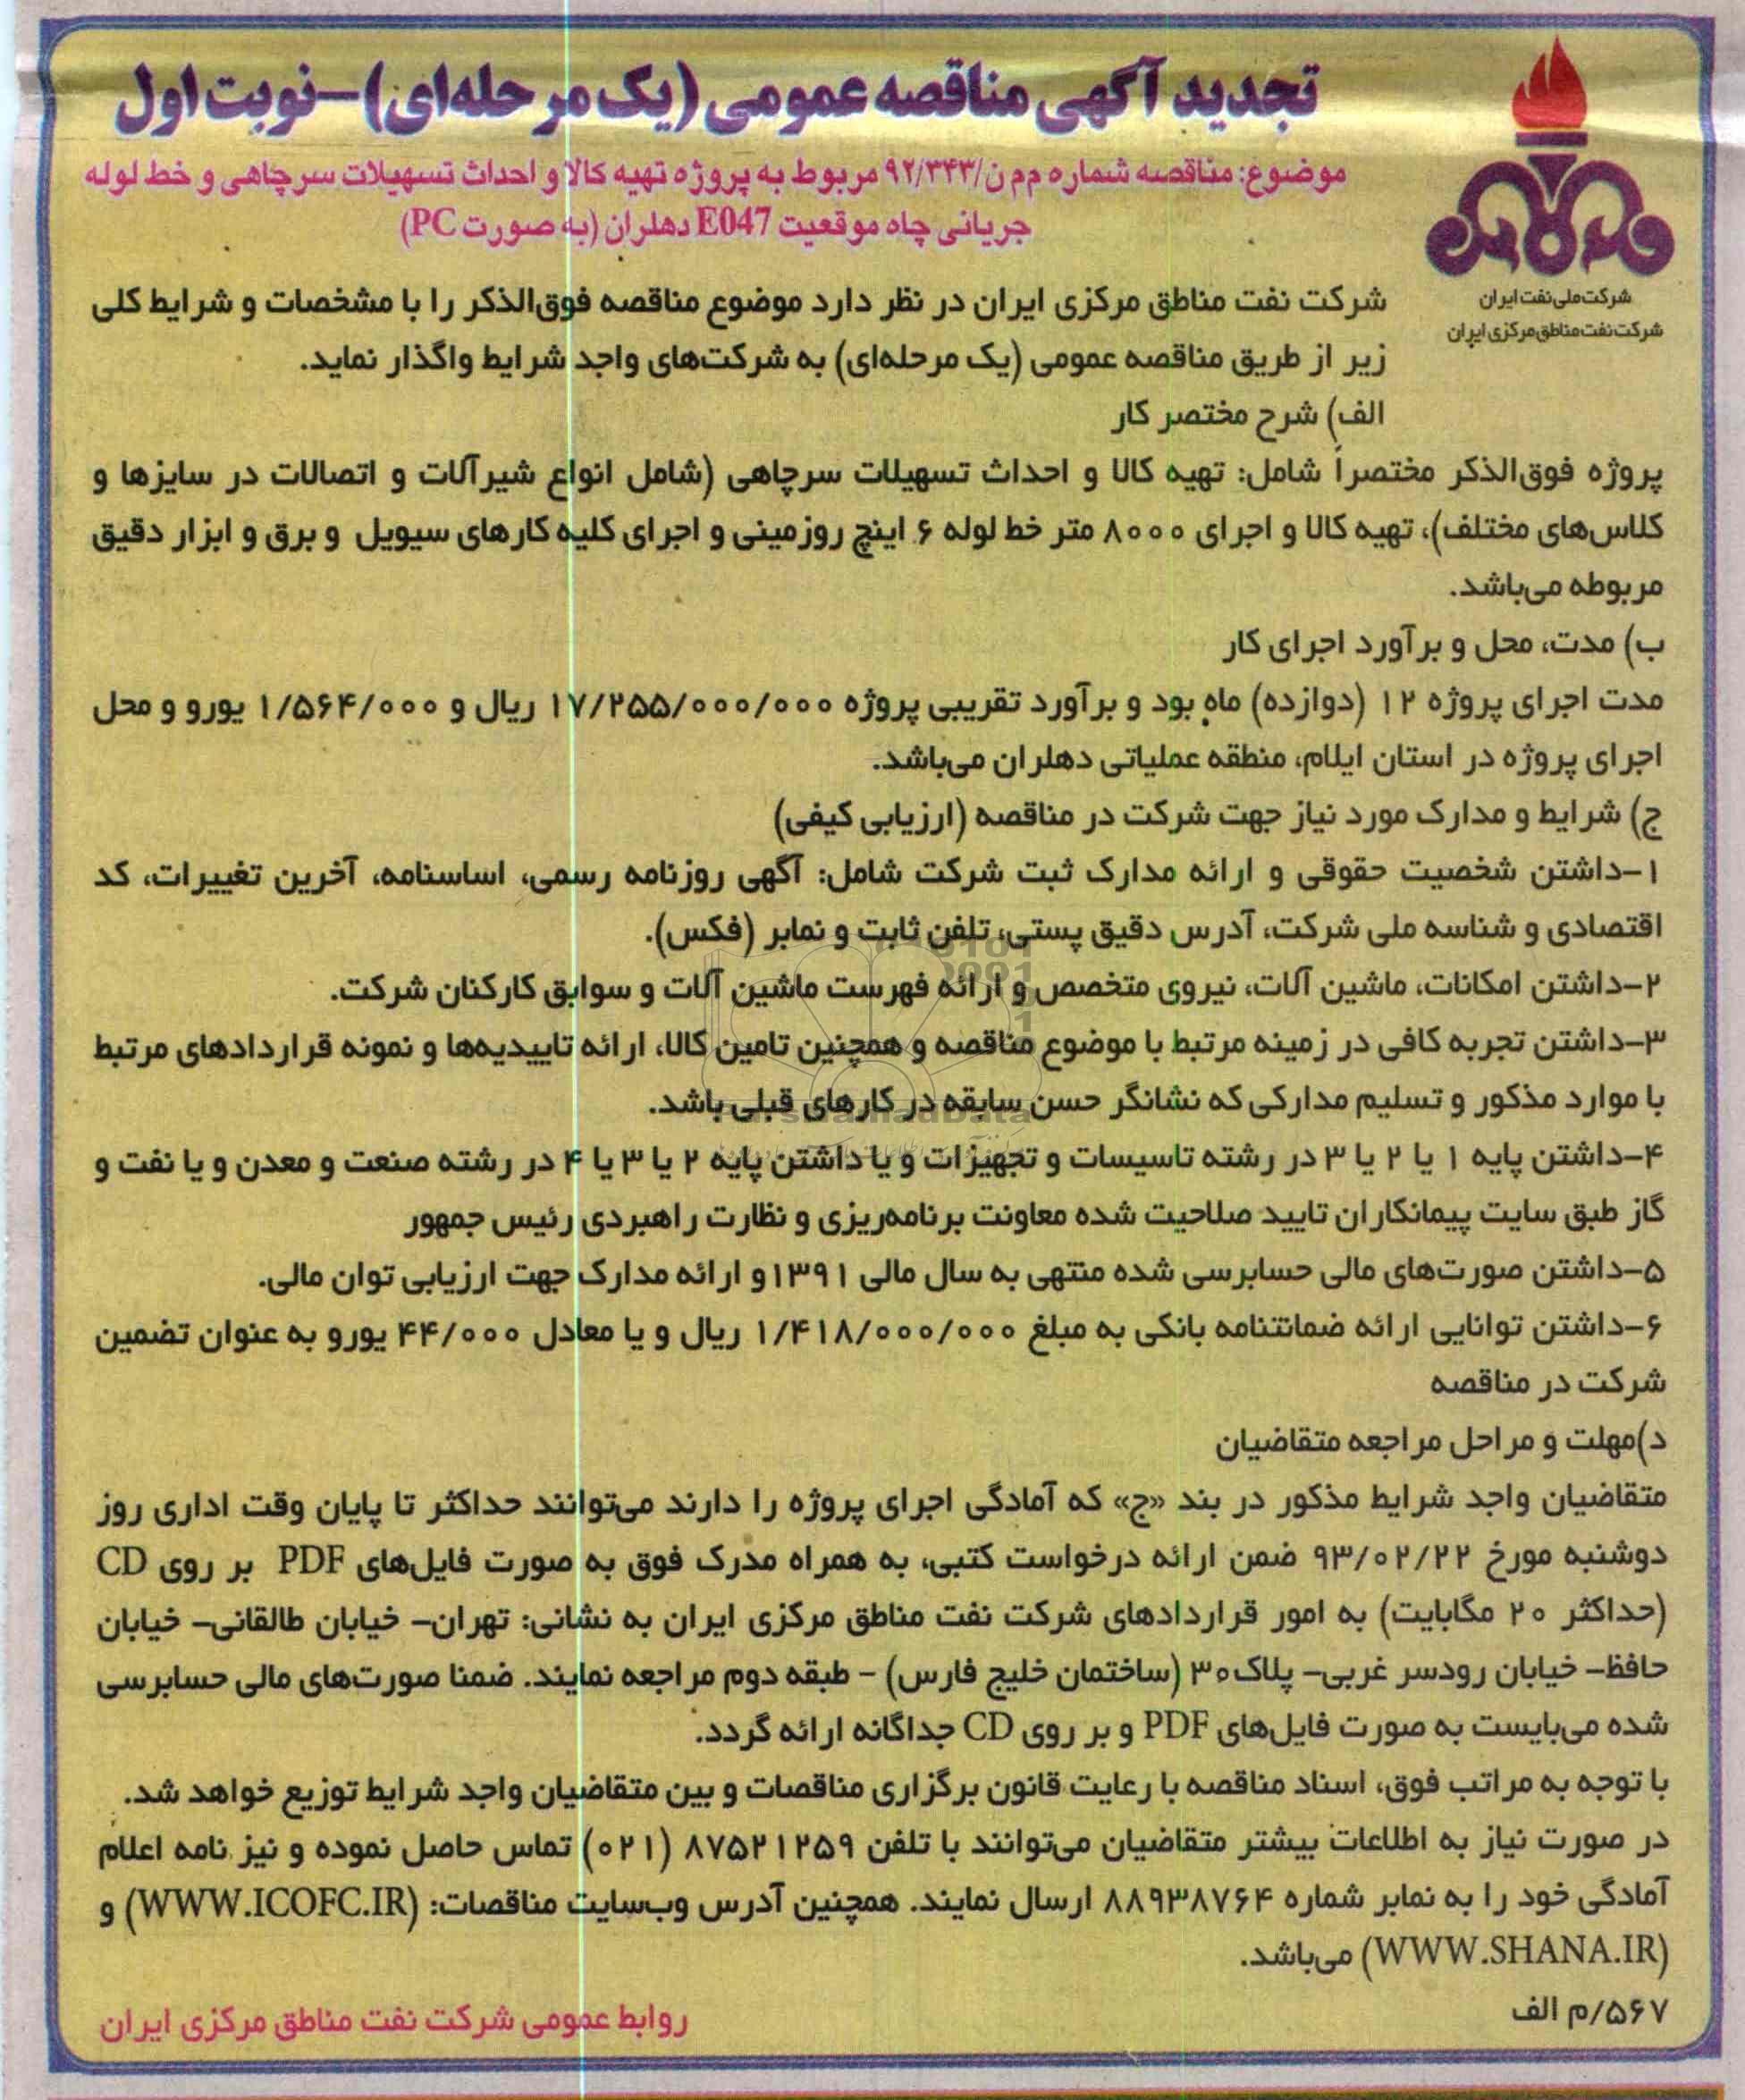 تجدید آگهی مناقصه عمومی (یک مرحله‌ای) – نوبت اول
موضوع: مناقصه شماره م‌م‌ن/۹۲/۳۴۳ مربوط به پروژه تهیه کالا و احداث تسهیلات سرچاهی و خط لوله
جریانی چاه موقعیت E047 دهلران (به صورت PC)
شرکت ملی نفت ایران
شرکت نفت مناطق مرکزی ایران
شرکت نفت مناطق مرکزی ایران در نظر دارد موضوع مناقصه فوق‌الذکر را با مشخصات و شرایط کلی
زیر از طریق مناقصه عمومی (یک مرحله‌ای) به شرکت‌های واجد شرایط واگذار نماید.
الف) شرح مختصر کار
پروژه فوق‌الذکر مختصراً شامل: تهیه کالا و احداث تسهیلات سرچاهی (شامل انواع شیرآلات و اتصالات در سایزها و
کلاس‌های مختلف)، تهیه کالا و اجرای ۸۰۰۰ متر خط لوله ۶ اینچ روزمینی و اجرای کلیه کارهای سیویل و برق و ابزار دقیق
مربوطه می‌باشد.
ب) مدت، محل و برآورد اجرای کار
مدت اجرای پروژه ۱۲ (دوازده) ماه بود و برآورد تقریبی پروژه ۱۷/۲۵۵/۰۰۰/۰۰۰ ریال و ۱/۵۶۴/۰۰۰ یورو و محل
اجرای پروژه در استان ایلام، منطقه عملیاتی دهلران می‌باشد.
ج) شرایط و مدارک مورد نیاز جهت شرکت در مناقصه (ارزیابی کیفی)
۱–داشتن شخصیت حقوقی و ارائه مدارک ثبت شرکت شامل: آگهی روزنامه رسمی، اساسنامه، آخرین تغییرات، کد
اقتصادی و شناسه ملی شرکت، آدرس دقیق پستی، تلفن ثابت و نمابر (فکس).
۲–داشتن امکانات، ماشین آلات، نیروی متخصص و ارائه فهرست ماشین آلات و سوابق کارکنان شرکت.
۳–داشتن تجربه کافی در زمینه مرتبط با موضوع مناقصه و همچنین تامین کالا، ارائه تاییدیه‌ها و نمونه قراردادهای مرتبط
با موارد مذکور و تسلیم مدارکی که نشانگر حسن سابقه در کارهای قبلی باشد.
۴–داشتن پایه ۱ یا ۲ یا ۳ در رشته تاسیسات و تجهیزات و یا داشتن پایه ۲ یا ۳ یا ۴ در رشته صنعت و معدن و یا نفت و
گاز طبق سایت پیمانکاران تایید صلاحیت شده معاونت برنامه‌ریزی و نظارت راهبردی رئیس جمهور
۵–داشتن صورت‌های مالی حسابرسی شده منتهی به سال مالی ۱۳۹۱ و ارائه مدارک جهت ارزیابی توان مالی.
۶–داشتن توانایی ارائه ضمانتنامه بانکی به مبلغ ۱/۴۱۸/۰۰۰/۰۰۰ ریال و یا معادل ۴۴/۰۰۰ یورو به عنوان تضمین
شرکت در مناقصه
د)مهلت و مراحل مراجعه متقاضیان
متقاضیان واجد شرایط مذکور در بند «ج» که آمادگی اجرای پروژه را دارند می‌توانند حداکثر تا پایان وقت اداری روز
دوشنبه مورخ ۹۳/۰۲/۲۲ ضمن ارائه درخواست کتبی، به همراه مدرک فوق به صورت فایل‌های PDF بر روی CD
(حداکثر ۲۰ مگابایت) به امور قراردادهای شرکت نفت مناطق مرکزی ایران به نشانی: تهران– خیابان طالقانی– خیابان
حافظ– خیابان رودسر غربی– پلاک۳۰ (ساختمان خلیج فارس) – طبقه دوم مراجعه نمایند. ضمنا صورت‌های مالی حسابرسی
شده می‌بایست به صورت فایل‌های PDF و بر روی CD جداگانه ارائه گردد.
با توجه به مراتب فوق، اسناد مناقصه با رعایت قانون برگزاری مناقصات و بین متقاضیان واجد شرایط توزیع خواهد شد.
در صورت نیاز به اطلاعات بیشتر متقاضیان می‌توانند با تلفن ۸۷۵۲۱۲۵۹ (۰۲۱) تماس حاصل نموده و نیز نامه اعلام
آمادگی خود را به نمابر شماره ۸۸۹۳۸۷۶۴ ارسال نمایند. همچنین آدرس وب‌سایت مناقصات: (WWW.ICOFC.IR) و
(WWW.SHANA.IR) می‌باشد.
۵۶۷/م الف
روابط عمومی شرکت نفت مناطق مرکزی ایران